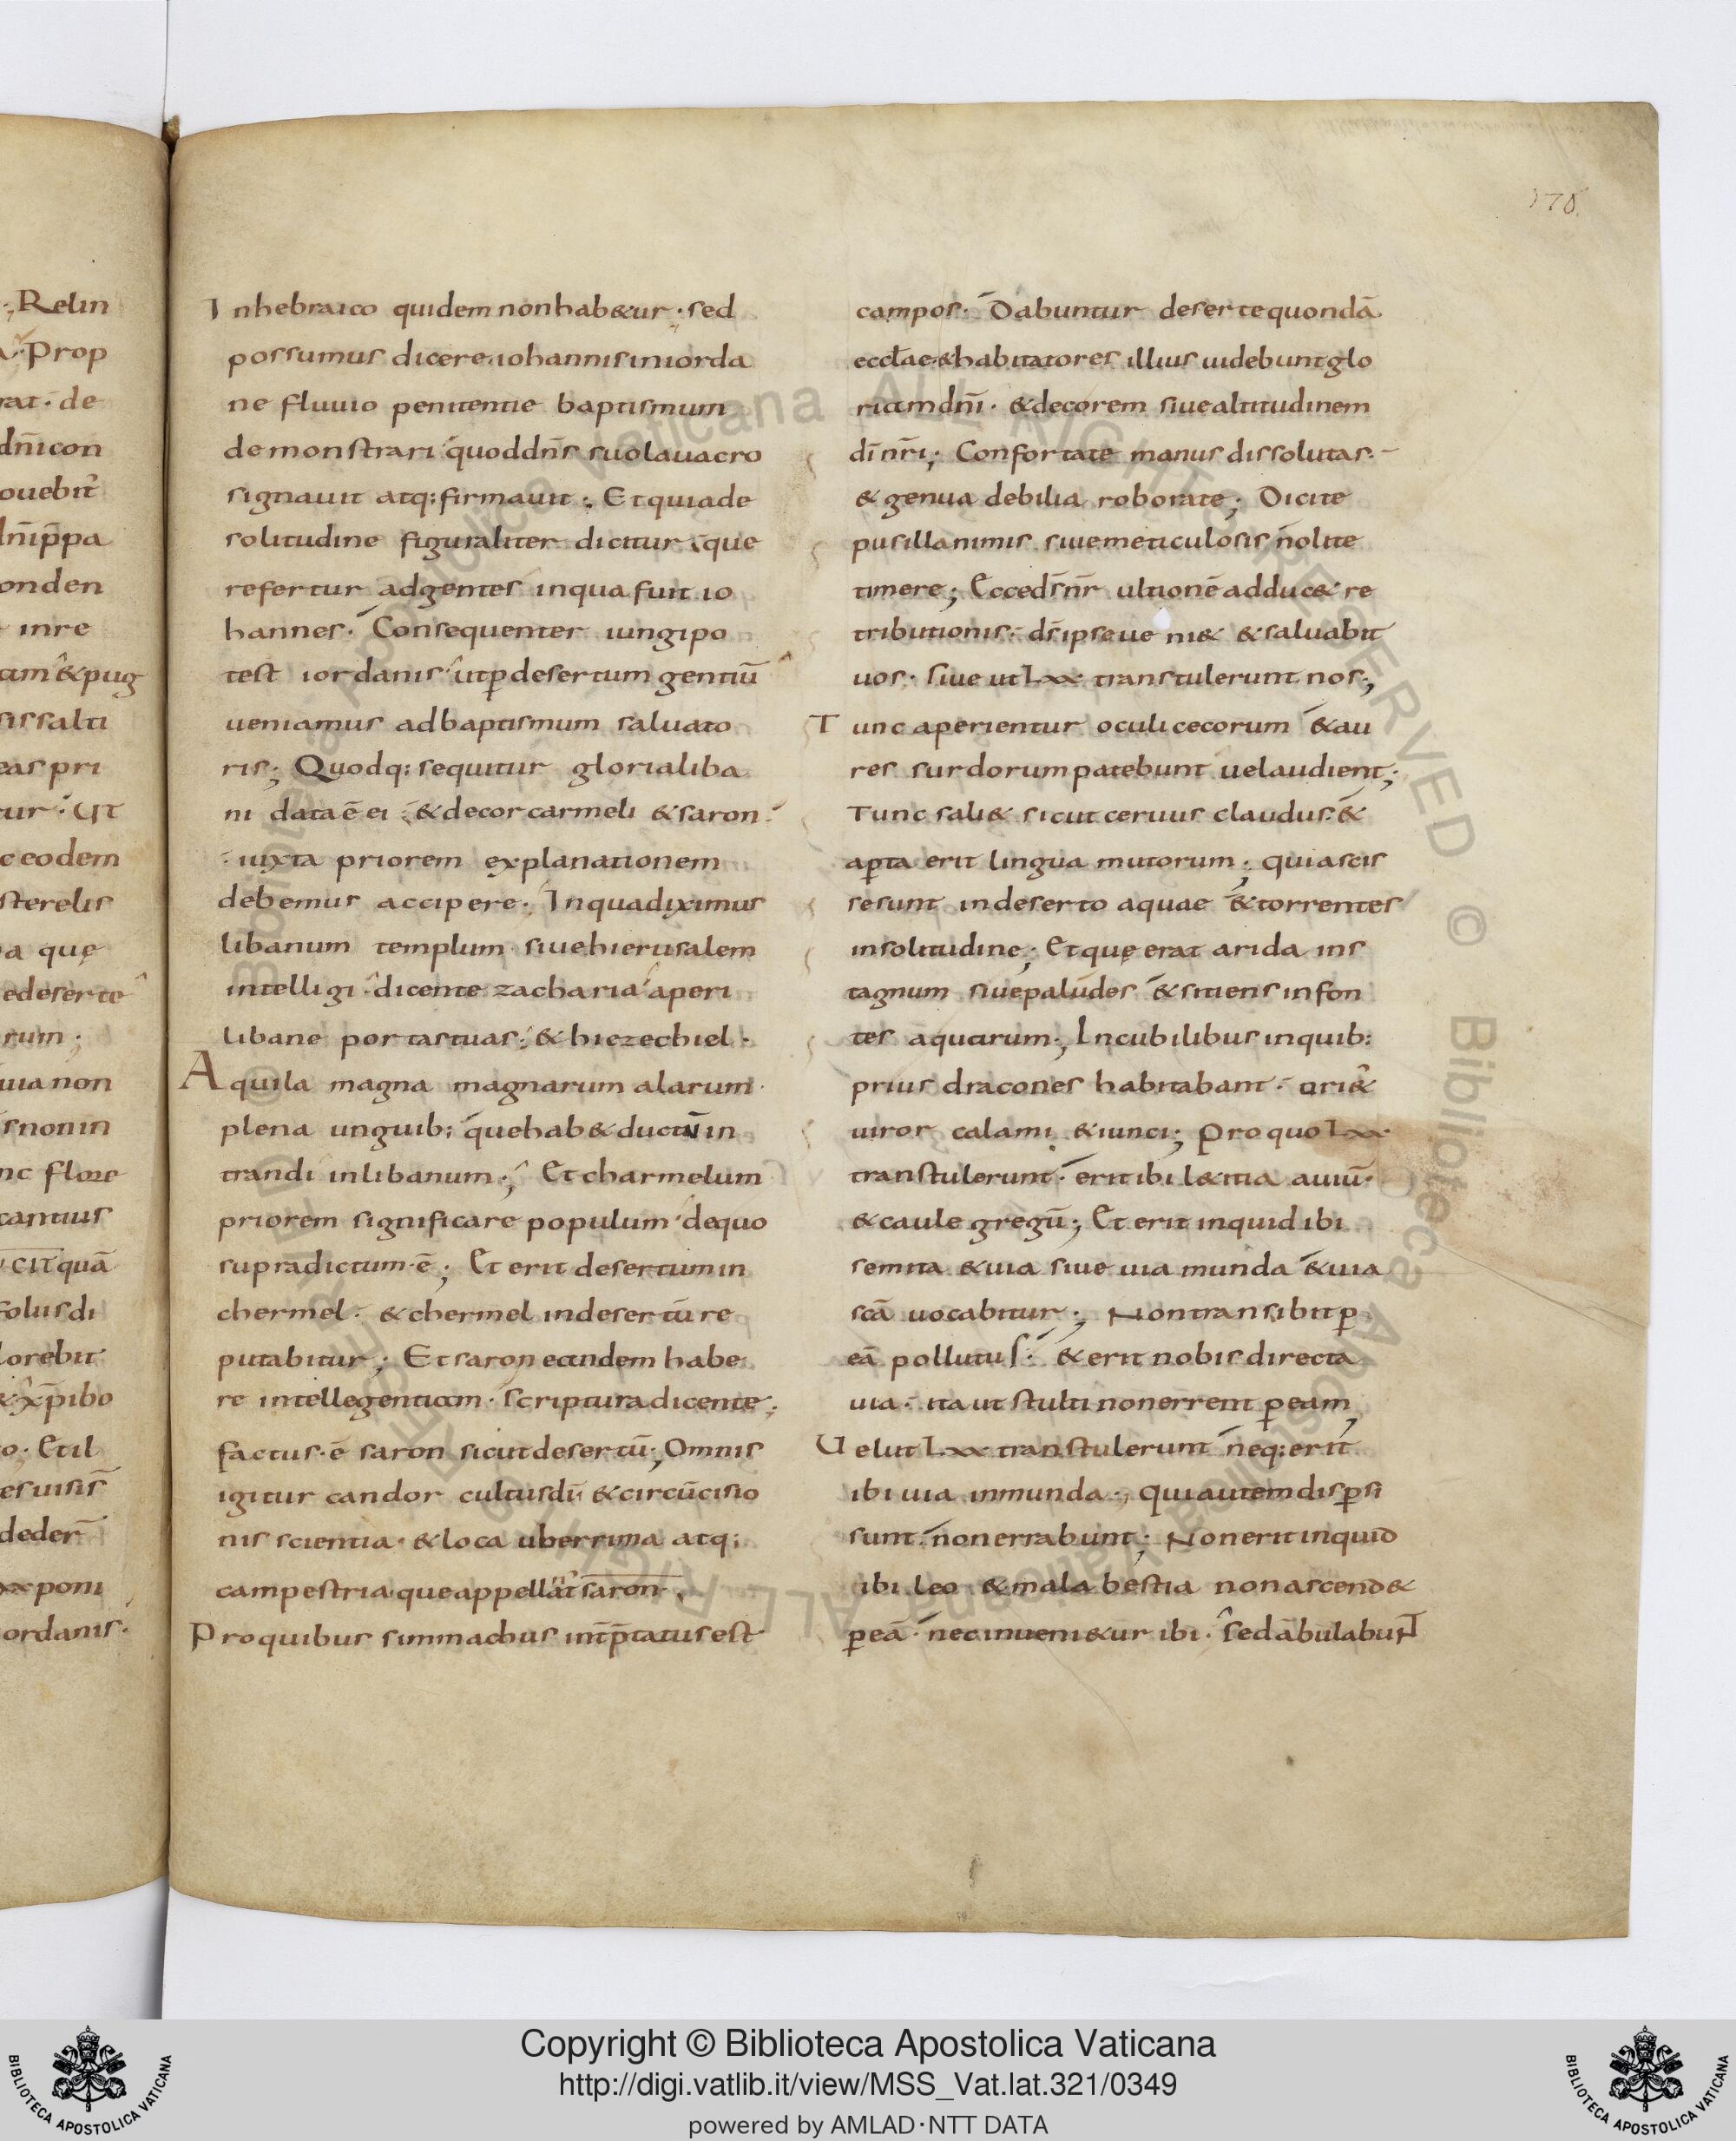 :; Relin
a. Prop
rat. de
dn̄icon
ouebit̄
dn̄ip̄pa
onden
inre
tam & pug
sissalti
eas pri
tur. Ut
c eodem
sterelis
a quę
edeserte
rum;
uia non
s non in
nc flore
cantius
cit quā
solusdi
lorebit
& xp̄ibo
o. Etil
esuisis̄
deder̄
xx poni
ordanis.
170.
Inhebraico quidem nonhab&ur; sed
possumus dicere. iohannis iniorda
ne fluuio penitentie baptismum
demonstrari quoddn̄s suolauacro
signauit atq: firmauit; Et quiade
solitudine figuraliter dicitur; que
refertur adgentes inqua fuit io
hannes. Consequenter iungi po
test iordanis ut ꝑ desertum gentiū
ueniamus adbaptismum saluato
ris; Quodq: sequitur glorialiba
ni data ē ei; & decor carmeli & saron.
iuxta priorem explanationem
debemus accipere. Inquadiximus
libanum templum siuehierusalem
intelligi. dicente zacharia aperi
libane portastuas; & hiezechiel.
Aquila magna magnarum alarum.
plena unguib: quehab& ductū in
trandi inlibanum; Et charmelum
priorem significare populum dequo
supradictum. ē; Et erit desertum in
chermel. & chermel indesertū re
putabitur; Et saron eandem habe
re intellegentiam. scriptura dicente;
factus. ē saron sicut desertū; Omnis
igitur candor cultusdī & circūcisio
nis scientia. & loca uberrima atq:
campestria queappellāt saron.
Proquibus simmachus int̄p̄tatus est
campos. Dabuntur deserte quondā
eccłae & habitatores illius uidebunt glo
riam dn̄i. & decorem siue altitudinem
dī nr̄i; Confortate manus dissolutas.
& genua debilia roborate; Dicite
pusillanimis. siue meticulosis nolite
timere; Ecce ds̄ nr̄ ultionē adduc& re
tributionis. ds̄ ipse ue ni& & saluabit
uos. siue ut lxx transtulerunt nos;
Tunc aperientur oculi cecorum & au
res surdorum patebunt uelaudient;
Tunc sali& sicut ceruus claudus. &
aꝑta erit lingua mutorum; quiascis
sesunt indeserto aquae & torrentes
insolitudine; Et quę erat arida ins
tagnum siuepaludes & sitiens infon
tes aquarum; Incubilibus inquib:
prius dracones habitabant. ori&
uiror calami & iunci; Pro quo lxx
transtulerunt. erit ibi l&itia auiū.
& caule gregū; Et erit inquid ibi
semita & uia siue uia munda & uia
scā uocabitur; Non transibit ꝑ
eā pollutus. & erit nobis directa
uia. ita ut stulti nonerrent ꝑ eam,
Uelut lxx transtulerunt neq: erit
ibi uia inmunda; qui autem disꝑsi
sunt. nonerrabunt; Non erit inquid
ibi leo & mala bestia non ascend&
ꝑ eā. nec inueni&ur ibi. sed ābulabunt
Copyright © Biblioteca Apostolica Vaticana
http://digi.vatlib.it/view/MSS_Vat.lat.321/0349
powered by AMLAD·NTT DATA
BIBLIOTECA APOSTOLICA VATICANA
BIBLIOTECA APOSTOLICA VATICANA